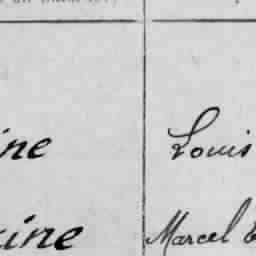 ine Louis
ine Marcel E